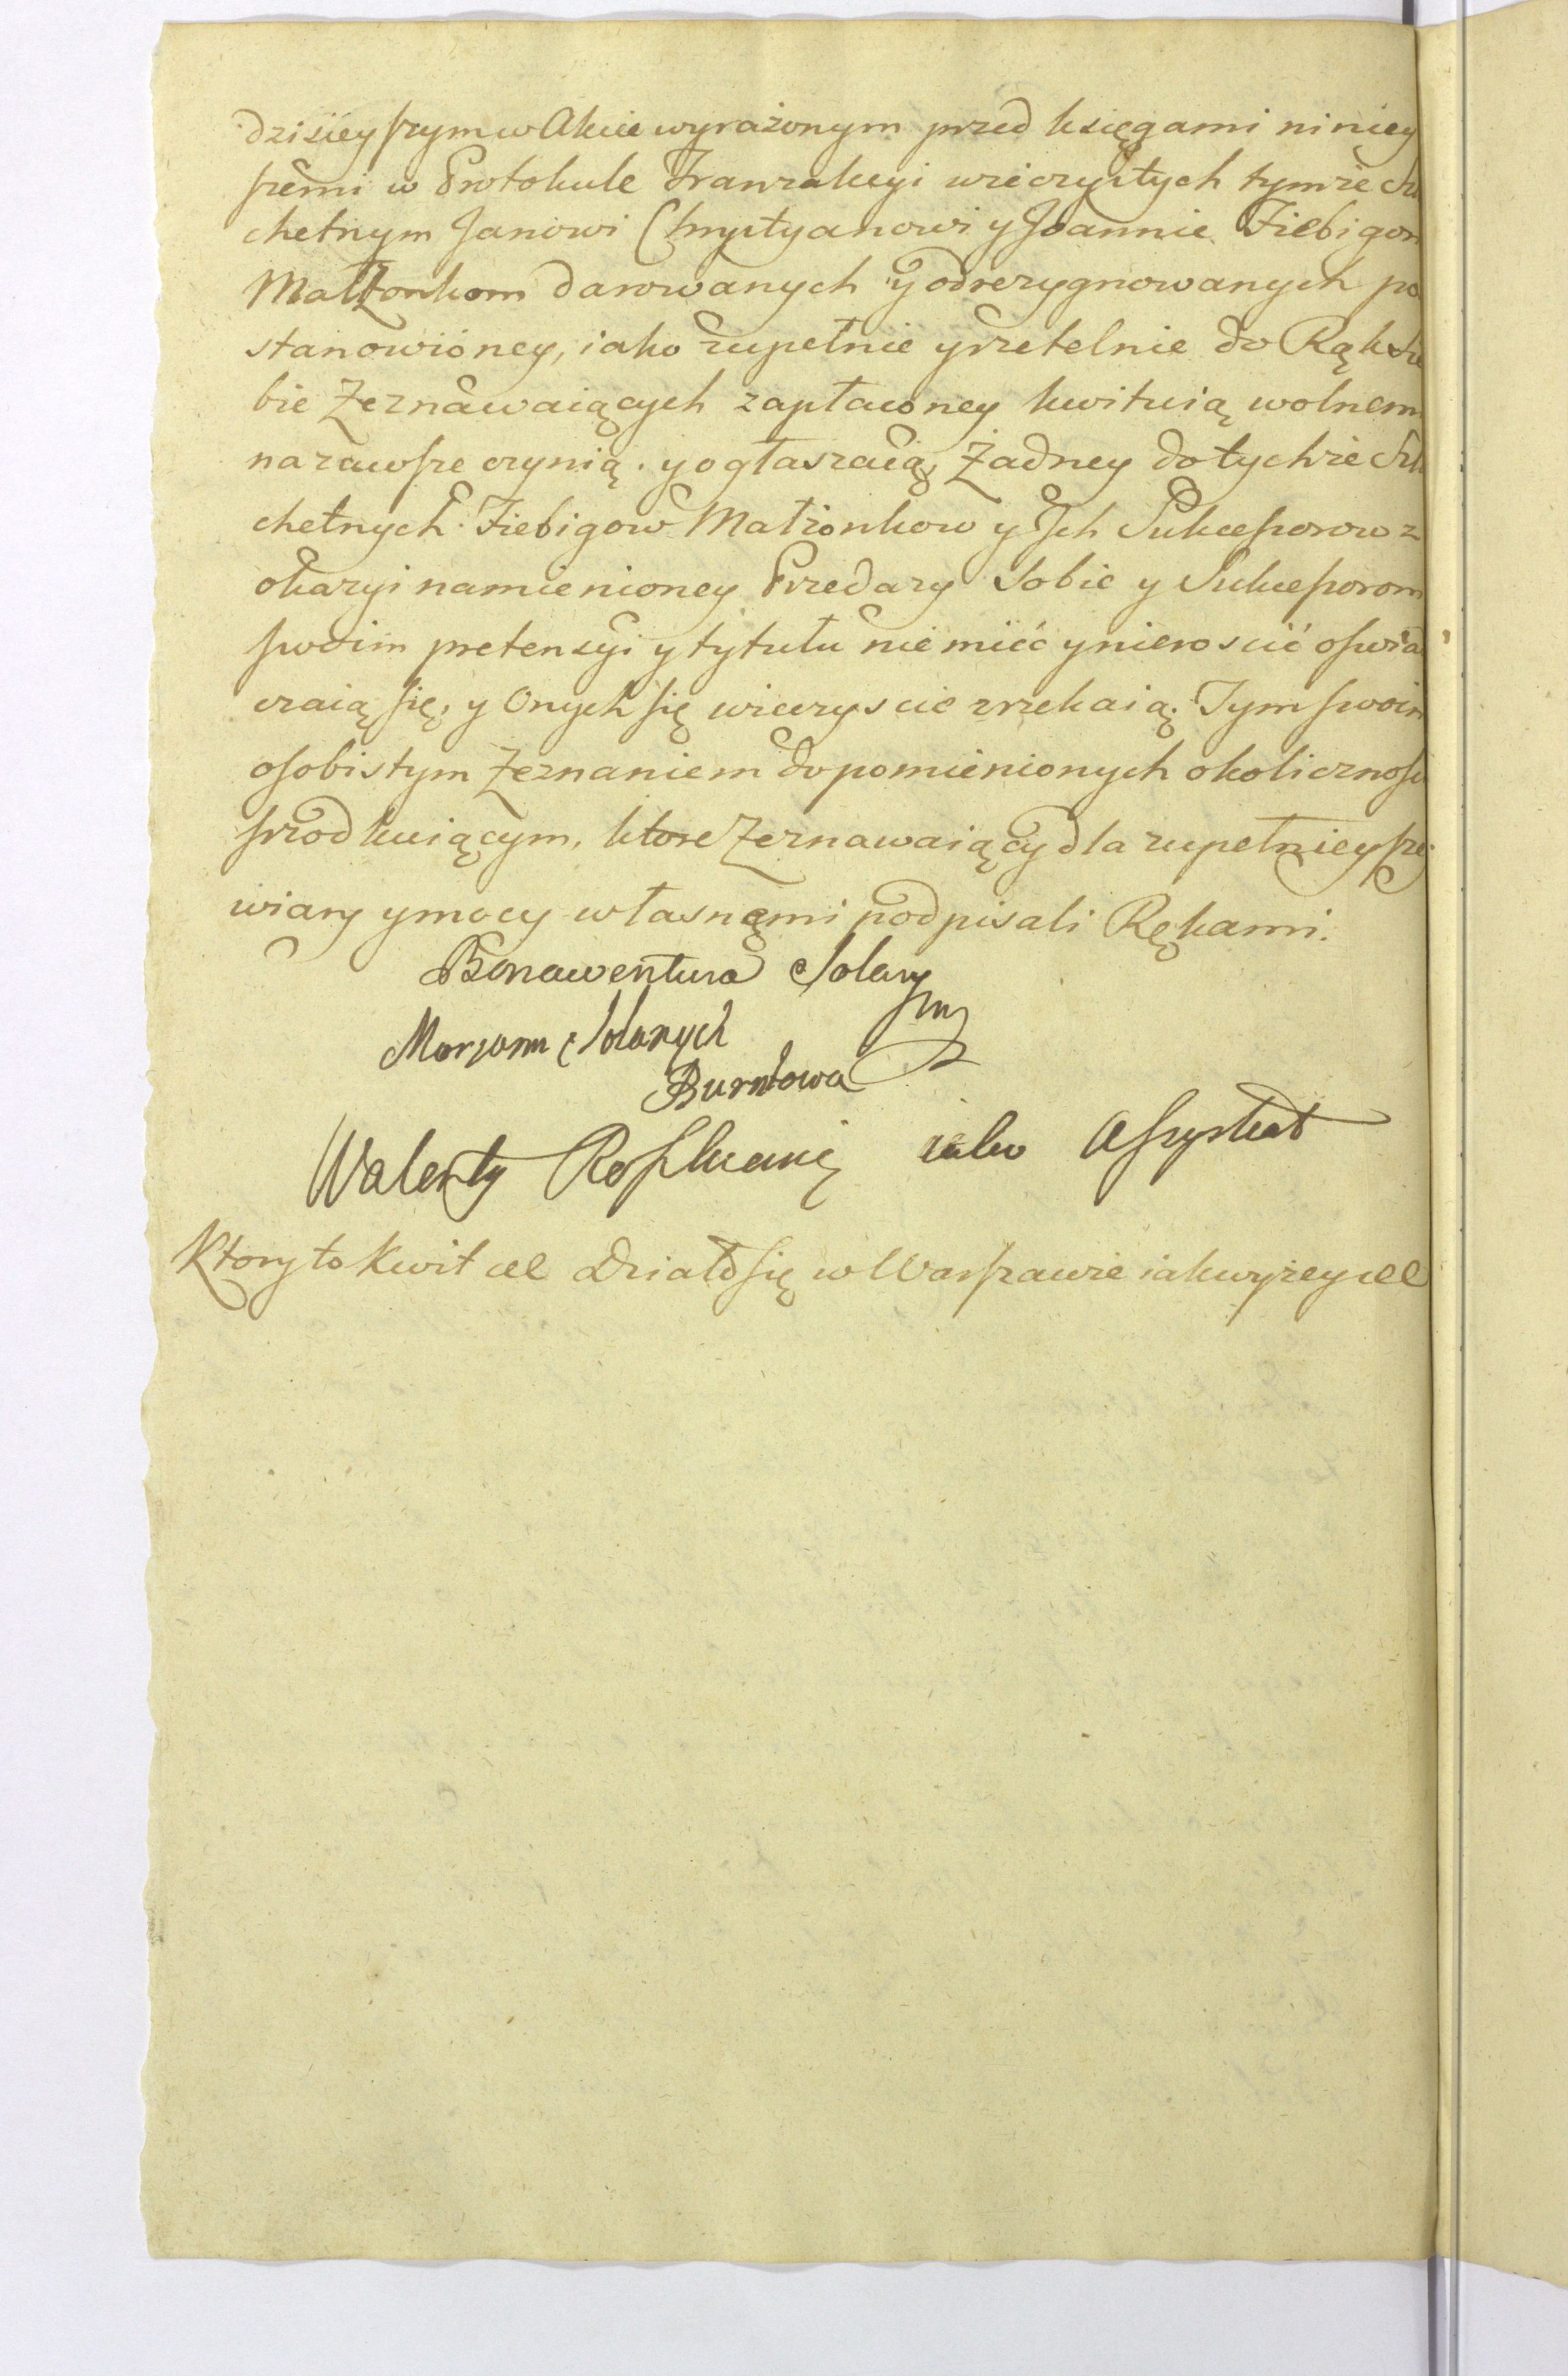 dzisieyszym w Akcie wyrażonym przed księgami niniey
szemi w Protokule Tranzakcyi wieczystych tymże Szla
chetnym Janowi Chrystyanowi y Joannie Fiebigom
Małżonkom darowanych y odrezygnowanych po
stanowioney, iako zupełnie y rzetelnie do Rąk sie
bie Zeznawaiących zapłaconey kwituią wolnemi
na zawsze czynią. y ogłaszaią, Żadney do tychże Szla
chetnych Fiebigow Małżonkow y Ich Sukcessorow z
okazyi namienioney Przedazy Sobie y Sukcessorom
swoim pretensyi y tytułu nie mieć y nieroscić oswia
czaią się, y Onych się wieczyscie zrzekaią. Tym swoim
osobistym Zeznaniem do pomienionych okolicznosci
srzodkuiącym, ktore Zeznawaiący dla zupełnieysze
wiary y mocy własnęmi podpisali Rękami.
Bonawentura Solary
mp
Maryanna z Solarych
Burntowa
Walenty iako Assystent
Ktory to Kwit etc Działo się w Warszawie iak wyżey etc